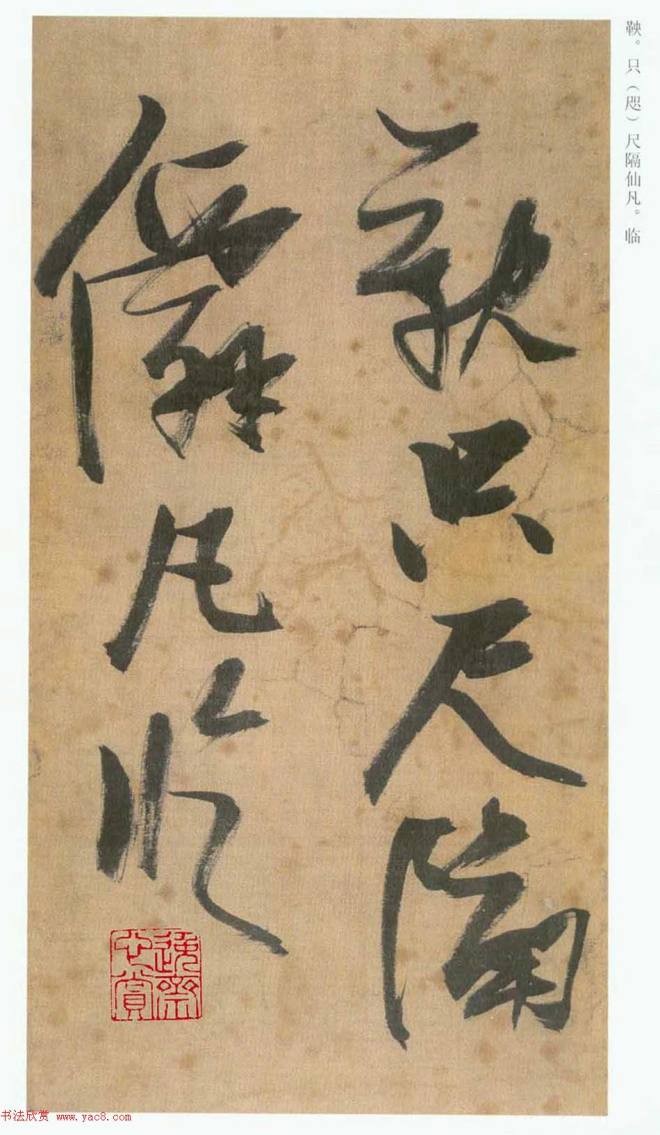 鞅只尺隔
僊凡临
鞅。只（咫）尺隔仙凡。临
书法欣赏 www.yac8.com